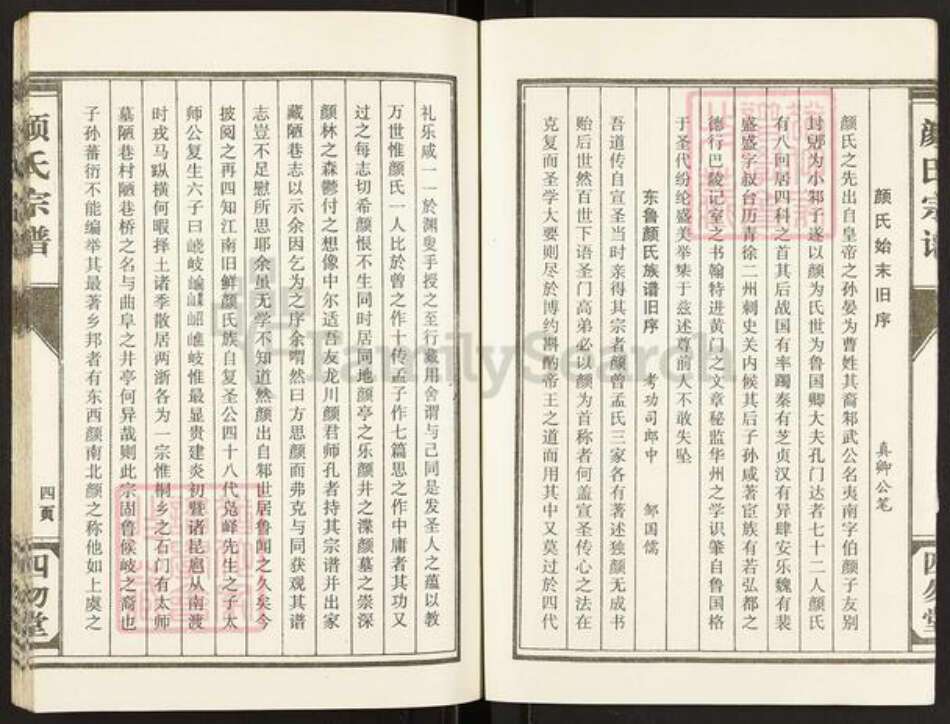 颜氏始末旧序
真卿公笔
颜氏之先出自皇帝之孙晏为曹姓其裔邾武公名夷南字伯颜子友别
封郳为小邾子遂以颜为氏世为鲁国卿大夫孔门达者七十二人颜氏
有八回居四科之首其后战国有率躅秦有芝贞汉有异肆安乐魏有裴
盛盛字叔台历青徐二州刺史关内候其后子孙咸著宦族有若弘都之
德行巴陵记室之书翰特进黄门之文章秘监华州之学识肇自鲁国格
于圣代纷纶盛美举集于兹述尊前人不敢失坠
东鲁颜氏族谱旧序
考功司郎中
邹国儒
吾道传自宣圣当时亲得其宗者颜曾孟氏三家各有著述独颜无成书
贻后世然百世下语圣门高弟必以颜为首称者何盖宣圣传心之法在
克复而圣学大要则尽於博约斟酌帝王之道而用其中又莫过於四代
礼乐咸一一於渊叟手授之至行藏用舍谓与己同是发圣人之蕴以教
万世惟颜氏一人比於曾之作十传孟子作七篇思之作中庸者其功又
过之每志切希颜恨不生同时居同地颜亭之乐颜井之渫颜墓之崇深
颜林之森鬱付之想像中尔适吾友龙川颜君师孔者持其宗谱并出家
藏陋巷志以示余因乞为之序余喟然曰方思颜而弗克与同获观其谱
志岂不足慰所思耶余虽无学不知道然颜出自邾世居鲁闻之久矣今
披阅之再四知江南旧鲜颜氏族自复圣公四十八代凫峄先生之子太
师公复生六子曰峣岐崳巙岹嶕岐惟最显贵建炎初暨诸昆扈从南渡
时戎马蹤横何暇择土诸季散居两浙各为一宗惟桐乡之石门有太师
墓陋巷村陋巷桥之名与曲阜之井亭何异哉则此宗固鲁候岐之裔也
子孙蕃衍不能编举其最著乡邦者有东西颜南北颜之称他如上虞之
颜氏宗谱
四页
四勿堂
颜氏宗谱
四勿堂
FamilySearch